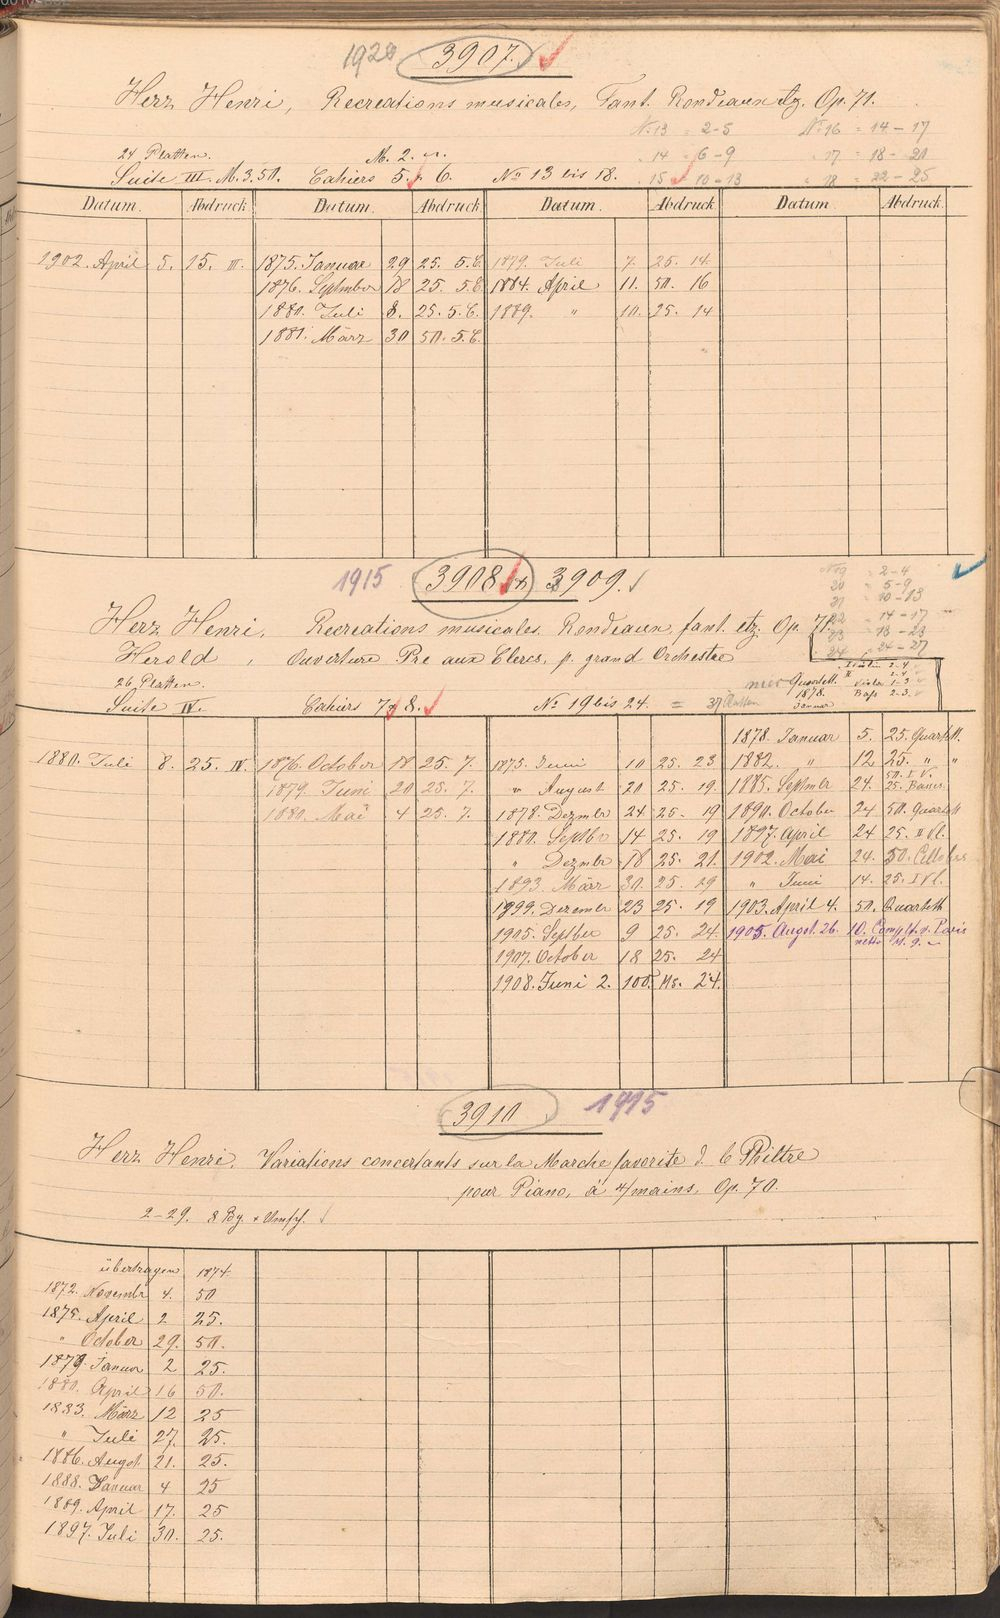 1920 3907.
Herz Henri, Recreations musicales, Fant. Rondeaux etz. Op. 71.
No 13 = 2-5 No 16 = 14-17
24 Platten. M. 2. n. 14 = 6-9 17 = 18-21
Suite III. M. 3.50. Cahiers 5. 6. No 13 bis 18. 15 10-13 18 = 22-25
Datum. Abdruck Datum. Abdruck. Datum. Abdruck Datum. Abdruck.
1902. April 5. 15. III. 1875. Januar 29 25. 5.C. 1879. Juli 7. 25. 14.
1876. September 18 25. 5.C. 1884. April 11. 50. 16
1880. Juli 8. 25. 5.C. 1889. " 10. 25. 14
1881. März 30 50. 5.C.
1915 3908 & 3909.
No 19 = 2-4
20 5-9
21 = 10-13
22 = 14-17
23 = 18-23
24 = 24-27
Herz Henri, Recreations musicales. Rondeaux, fant. etz. Op. 71.
Herold, Ouverture Pre aux Clercs, p. grand Orchestre
26 Platten. nur Quartett. Violin 2-4
II 2-4
1878. Viola 1-3
Januar Bass 2-3.
Suite IV. Cahiers 7 & 8. No 19 bis 24. = 37 Platten
1878. Januar 5. 25. Quartett.
1880. Juli 8. 25. IV. 1876. October 18 25. 7. 1875. Juni 10 25. 23 1882. " 12 25. " "
1879. Juni 20 25. 7. " August 20 25. 19. 1885. Septmbr 24. 50. I V. 25. Basses.
1880. Mai 4 25. 7. 1878. Dezmbr 24 25. 19 1890. October 24 50. Quartett
1880. Septbr 14 25. 19 1897. April 24 25. II Vl.
" Dezmbr 18 25. 21. 1902. Mai 24. 50.
1893. März 30. 25. 29 " Juni 14. 25. I Vl.
1899. Dezembr 23 25. 19 1903. April 4. 50. Quartett
1905. Septber 9 25. 24. 1905. Augst. 26. 10. Complt. v. Paris
netto M. 9.
1907. October 18 25. 24
1908. Juni 2. 100. Ms. 24.
3910 1915
Herz Henri. Variations concertants sur la Marche favorite d. le Philtre
pour Piano, à 4/mains, Op. 70.
2-29. 8 Bg. + Umschl.
übertragen 1874.
1872. Novembr 4. 50
1875. April 2 25.
" October 29. 50.
1879. Januar 2 25.
1880. April 16 50.
1883. März 12 25
" Juli 27. 25.
1886. Augst. 21. 25.
1888. Januar 4 25
1889. April 17. 25
1897. Juli 30. 25.